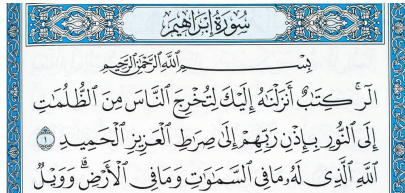 سُورَةُ إِبْرَاهِيمَ
بِسْمِ اللَّهِ الرَّحْمَٰنِ الرَّحِيمِ
الٓر ۚ كِتَٰبٌ أَنزَلْنَٰهُ إِلَيْكَ لِتُخْرِجَ النَّاسَ مِنَ الظُّلُمَٰتِ
إِلَى النُّورِ بِإِذْنِ رَبِّهِمْ إِلَىٰ صِرَٰطِ الْعَزِيزِ الْحَمِيدِ ١
اللَّهِ الَّذِى لَهُۥ مَا فِى السَّمَٰوَٰتِ وَمَا فِى الْأَرْضِ ۗ وَوَيْلٌ